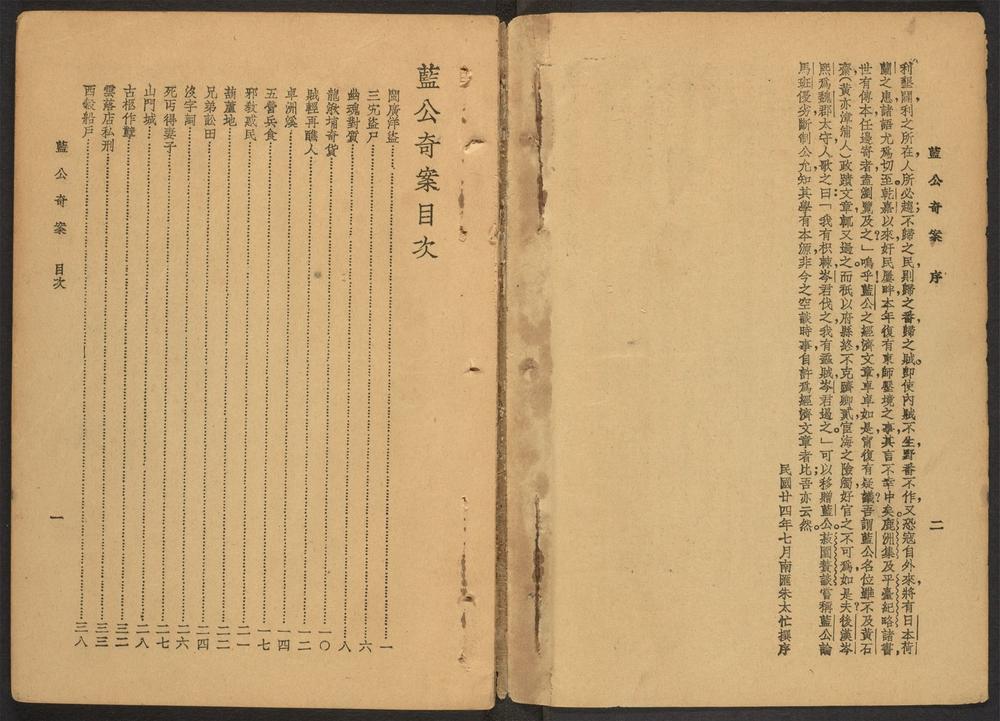 藍公奇案 序 二
利墾闢利之所在人所必趨；不歸之民則歸之番歸之賊。即使內賊不生野番不作，又恐寇自外來將有日本荷
蘭之患諸語尤爲切至。乾嘉以來奸民屢畔本年復有東師壓境之事其言不幸中矣。鹿洲集及平臺紀略諸書，
世有傳本任邊寄者盍瀏覽及之」嗚乎藍公之經濟文章，卓卓如是甯復有疑議？吾謂藍公名位雖不及黃石
齋（黃亦漳浦人）政蹟文章輒又過之。而祇以府縣終不克躋卿貳宦海之險，獨好官之不可爲如是夫後漢岑
熙爲魏郡太守人歌之曰：「我有枳棘岑君伐之，我有蟊賊岑君遏之。」可以移贈藍公。荔園蕓談嘗稱藍公論
馬班優劣斷制公允知其學有本源，非今之空談時事自許爲經濟文章者比；吾亦云然。
民國廿四年七月南匯朱太忙撰序
藍公奇案目次
閩廣洋盜……一
三宄盜尸……六
幽魂對質……八
龍湫埔奇貨……一〇
賊輕再醮人……一二
卓洲溪……一四
五營兵食……一七
邪敎惑民……二一
葫蘆地……二二
兄弟訟田……二四
沒字詞……二六
死丐得妻子……二七
山門城……二八
古柩作孽……三二
雲落店私刑……三三
西穀船戶……三八
藍公奇案 目次 一